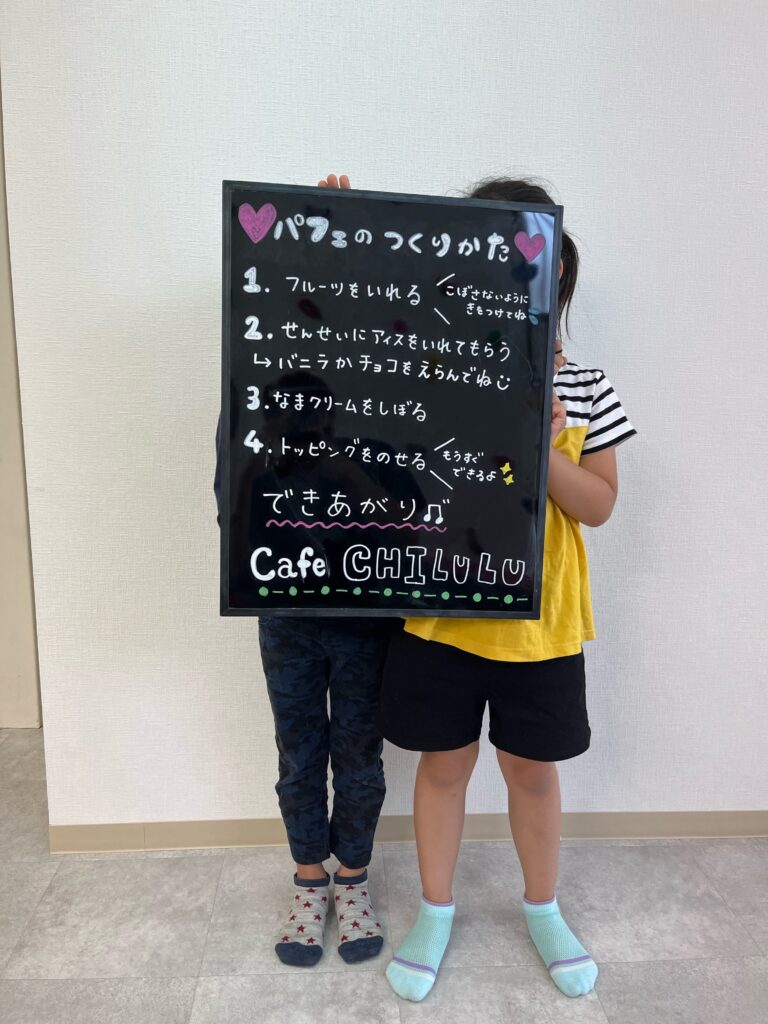 パフェのつくりかた
1. フルーツをいれる
こぼさないように
きをつけてね
2. せんせいにアイスをいれてもらう
↳ バニラか チョコを えらんでね
3. なまクリームをしぼる
4. トッピングをのせる
もうすぐ
できるよ
できあがり♫
Cafe CHILULU